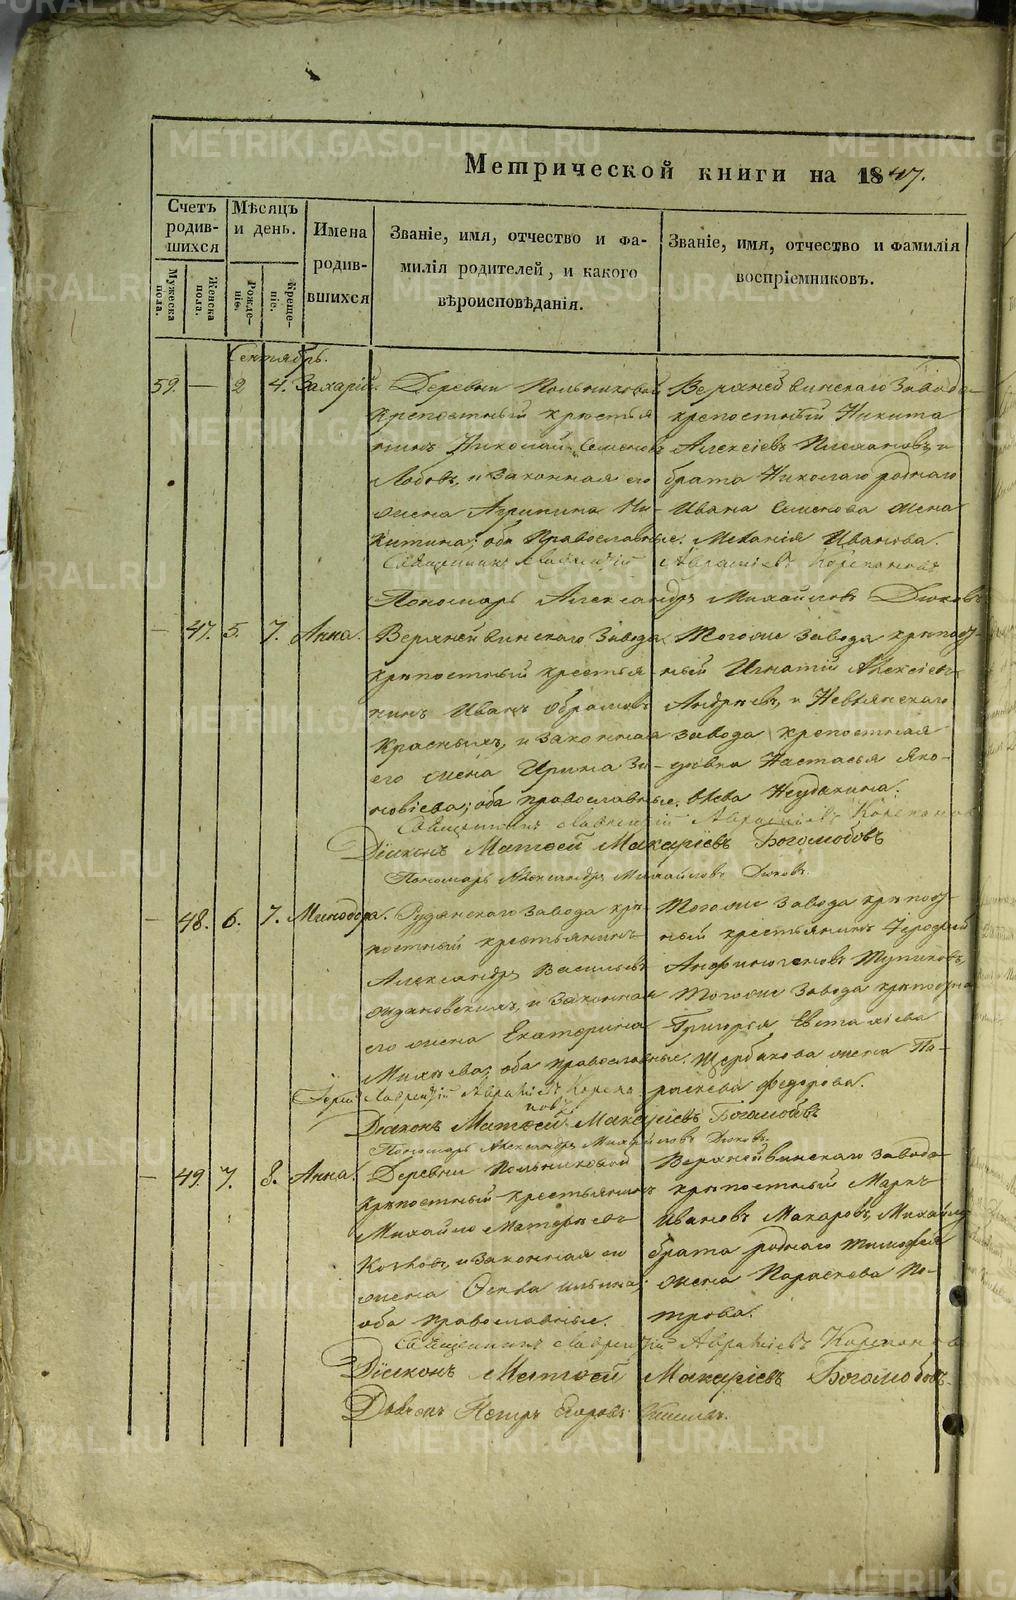 Метрической книги на 1847.
Счетъ родив-шихся
Мужеска пола.
Женска пола.
Мѣсяцъ и день.
Рожде-ніе.
Креще-ніе.
Имена родив-шихся
Званіе, имя, отчество и фа-
милія родителей, и какого
вѣроисповѣданія.
Званіе, имя, отчество и фамилія
воспріемниковъ.
Сентябрь.
59. — 2 4. Захарій.
Деревни Польниковой
крепостный крестья
нинъ Николай Семеновъ
Лобовъ, и законная его
жена Агрипина Ни-
китина; оба Православные.
Верхнейвинскаго завода
крепостный Никита
Алексіевъ Плехановъ, и
брата Николаю роднаго
Ивана Семенова жена
Меланія Иванова.
Священникъ Лаврентій Аврамієвъ Корепановъ
Пономарь Александръ Михайловъ Дюковъ
— 47. 5. 7. Анна.
Верхнейвинскаго завода
крѣпостный крестья
нинъ Иванъ Абрамовъ
Красныхъ, и законная
его жена Ирина За-
новіева; оба православные.
Тогоже завода крѣпост-
ный Игнатій Алексіевъ
Андрѣевъ, и Невьянскаго
завода крѣпостная
девка Настасья Яко-
влева Неудахина.
Священникъ Лаврентій Аврамієвъ Корепановъ
Діяконъ Матѳей Макаріевъ Боголюбовъ
Пономарь Александръ Михайловъ Дюковъ.
— 48. 6. 7. Минодора.
Рудянскаго завода крѣ-
постный крестьянинъ
Александръ Васильевъ
Ождановскихъ, и законная
его жена Екатерина
Михѣева; оба православные.
Тогоже завода крѣпост-
ный крестьянинъ
Анфиногеновъ Тупиковъ
Тогоже завода крѣпостна
Григорья Евстахіева
Щербакова жена Па-
раскева Федорова.
Іерей Лаврентій Аврамієвъ Корепа
новъ
Діяконъ Матѳей Макаріевъ Боголюбовъ
Пономарь Александръ Михайловъ Дюковъ.
— 49. 7. 8. Анна.
Деревни Польниковой
крѣпостный крестьянинъ
Михайло
и законная его
жена Ѳекла Ильина;
оба православные.
Верхнейвинскаго завода
крѣпостный Маркъ
Ивановъ Макаровъ, Михайлу
брата роднаго Тимофея
жена Параскева Пе-
трова.
Священникъ Лаврентій Аврамієвъ Корепановъ
Діяконъ Матѳей Макаріевъ Боголюбовъ
Петръ Егоровъ
METRIKI.GASO-URAL.RU